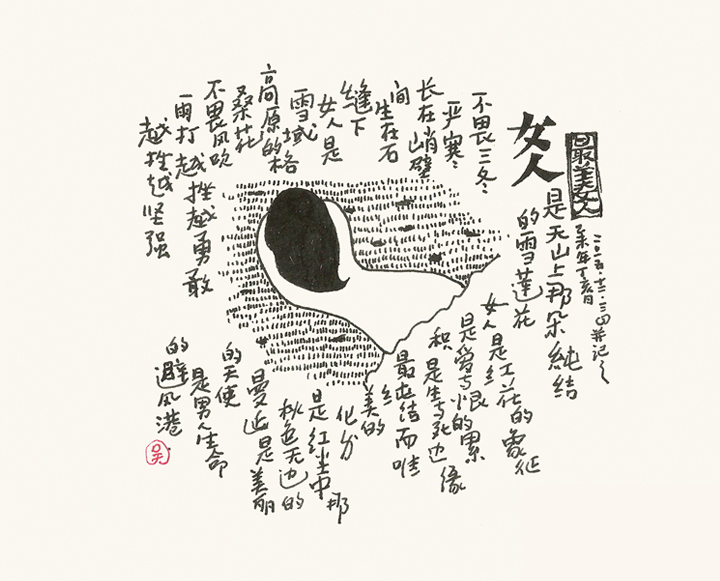 最美女人
女人
是天山上那朵純结
的雪莲花
不畏三冬
严寒
长在峭壁
间
生在石
缝下
女人是
雪域
高原的格
桑花
不畏风吹
雨打 越挫越勇敢
越挫越坚强
女人是红花的象征
是爱与恨的累
积 是生与死边缘
最 结而唯
美的
化分
是红尘中那
秋色无边的
曼延 是美丽
的天使
是男人生命
的避风港
吴